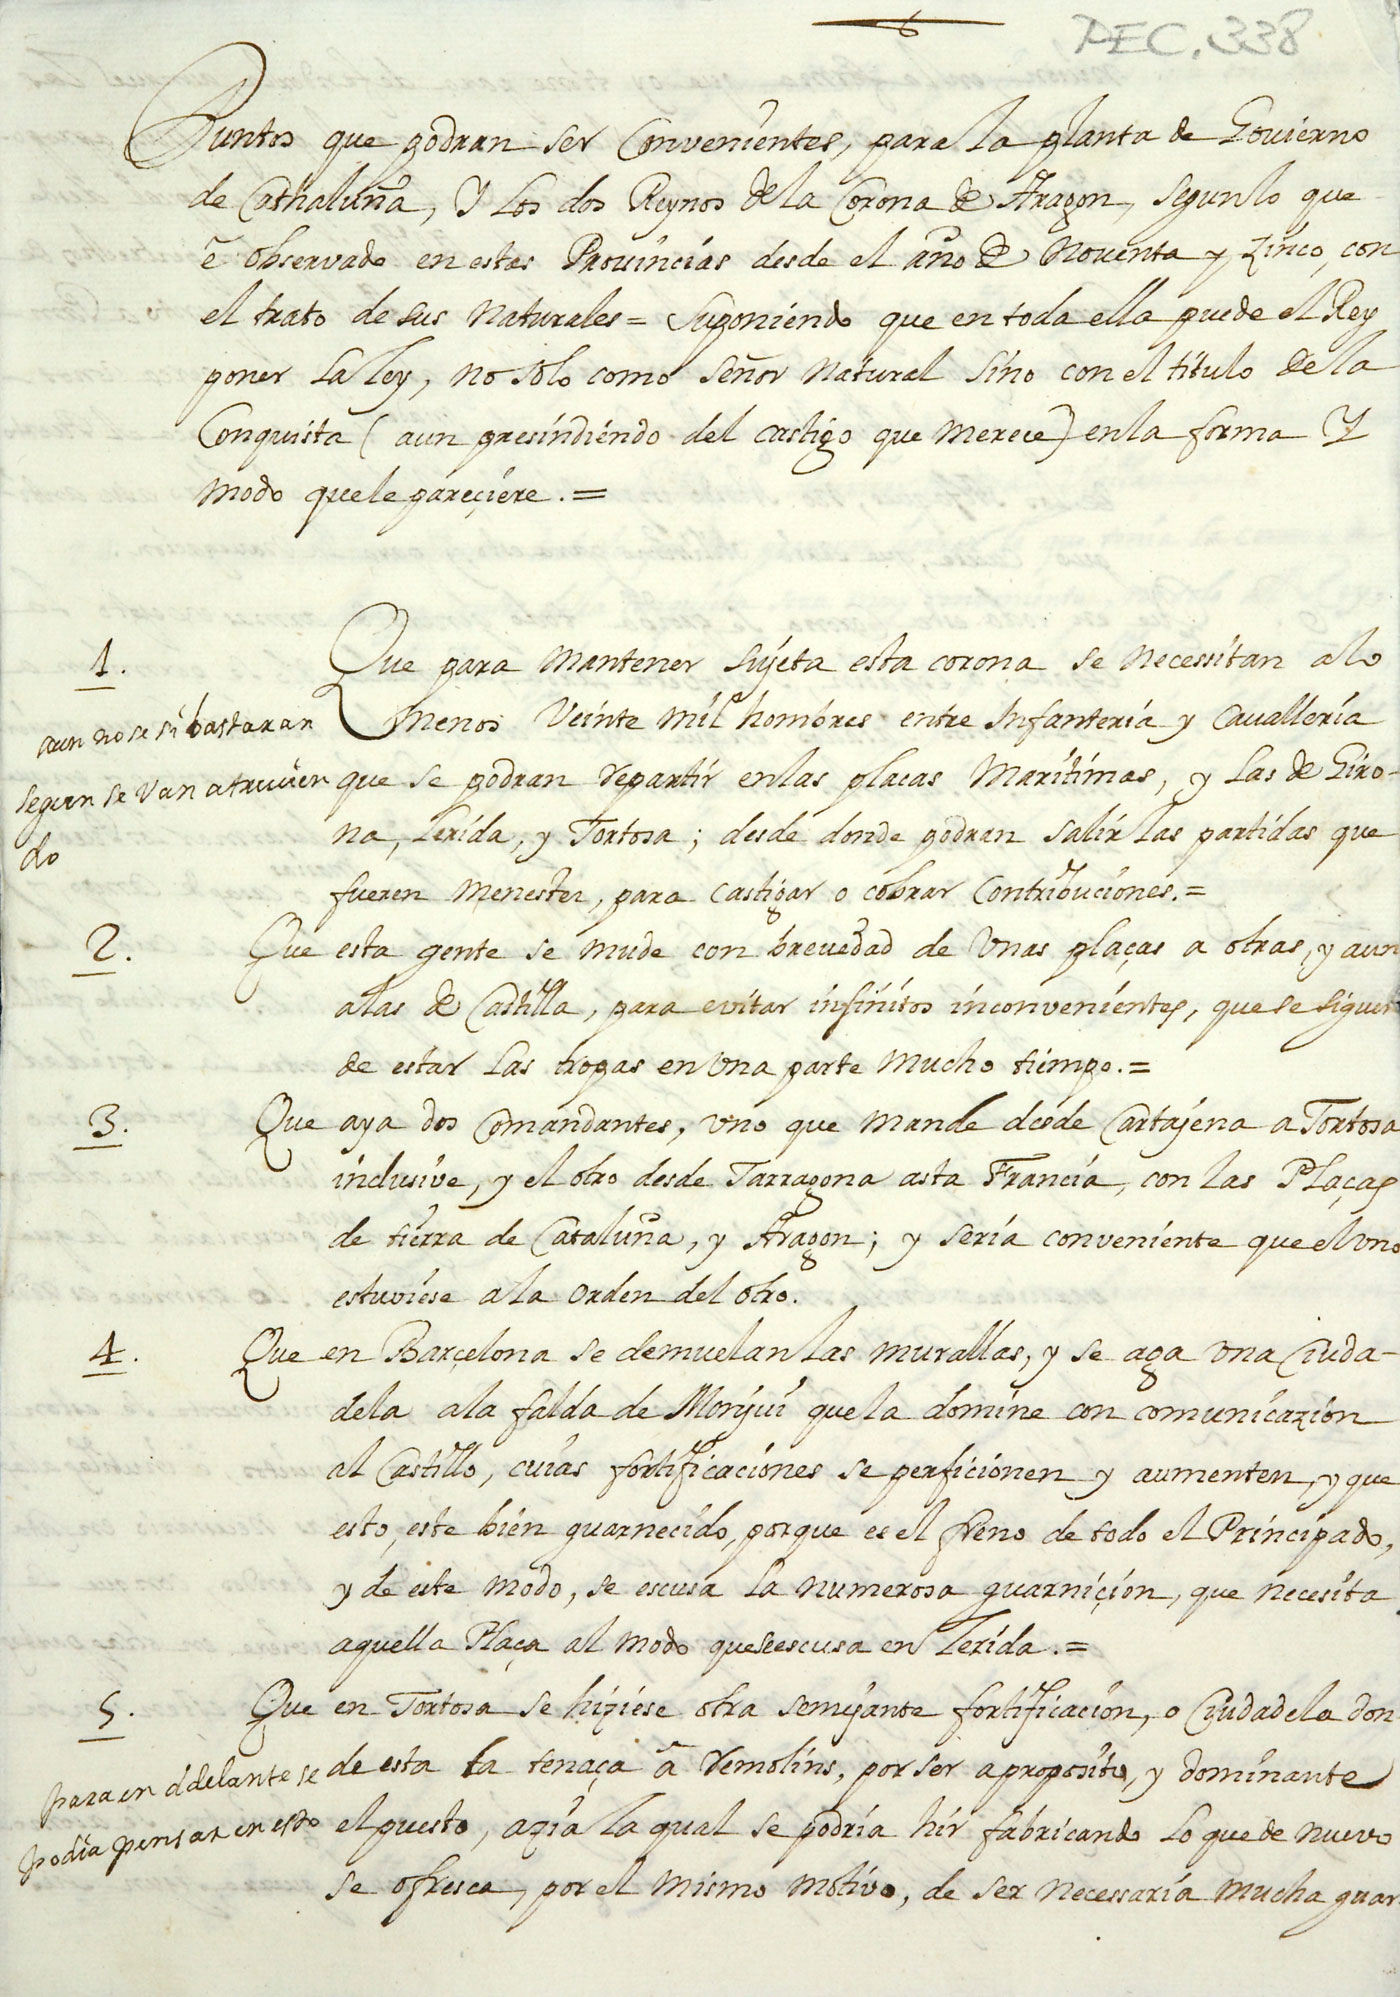 REC. 338
Puntos que podran ser Convenientes, para la planta de Govierno
de Cathaluña, Y Los dos Reynos de la Corona de Aragon, segun lo que
ê observado en estas Provincias desde el año de Noventa y Zinco, con
el trato de sus Naturales = Suponiendo que en toda ella puede el Rey
poner la ley, no solo como Señor Natural sino con el titulo de la
Conquista (aun presindiendo del castigo que merece) en la forma Y
modo que le pareçiere. =
1.
Que para mantener sujeta esta corona se necessitan a lo
menos Veinte mil hombres entre Infanteria y Cavalleria
que se podran repartir en las plaças Maritimas, y Las de Giro-
na, Lerida, y Tortosa; desde donde podran salir las partidas que
fueren menester, para castigar o cobrar Contribuciones. =
aun no se si bastaran
segun se van atruuien
do
2.
Que esta gente se mude con brevedad de Unas plaças a otras, y aun
a las de Castilla, para evitar infinitos inconvenientes, que se siguen
de estar Las tropas en Una parte mucho tiempo. =
3.
Que aya dos Comandantes, Uno que mande desde Cartajena a Tortosa
inclusive, y el otro desde Tarragona asta Francia, con las Plaças
de tierra de Cataluña, y Aragon; y seria conveniente que el Uno
estuviese a la orden del otro.
4.
Que en Barçelona se demuelan Las murallas, y se aga Una Ciuda-
dela a la falda de Monjui que la domine con comunicazion
al Castillo, cuias fortificaciones se perficionen y aumenten, y que
esto, este bien guarnecido, porque es el freno de todo el Principado,
y de este modo, se escusa La numerosa guarniçion, que necesita
aquella Plaça al modo que se escusa en Lerida. =
5.
Que en Tortosa se hiziese otra semejante fortificacion, o Ciudadela don
de esta la tenaça â remolins, por ser a proposito, y dominante
el puesto, azia La qual se podria hir fabricando Lo que de nuevo
se ofresca, por el mismo motivo, de ser necessaria mucha guar
para en âdelante se
podia pensar en esto